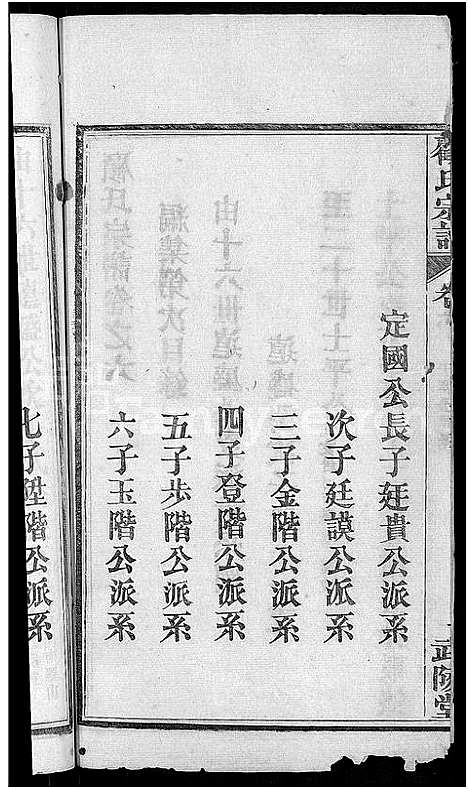 顧氏宗譜
卷
武陵堂
定國公長子廷貴公派系
次子廷謨公派系
三子金階公派系
四子登階公派系
五子步階公派系
六子玉階公派系
七子陞階公派系